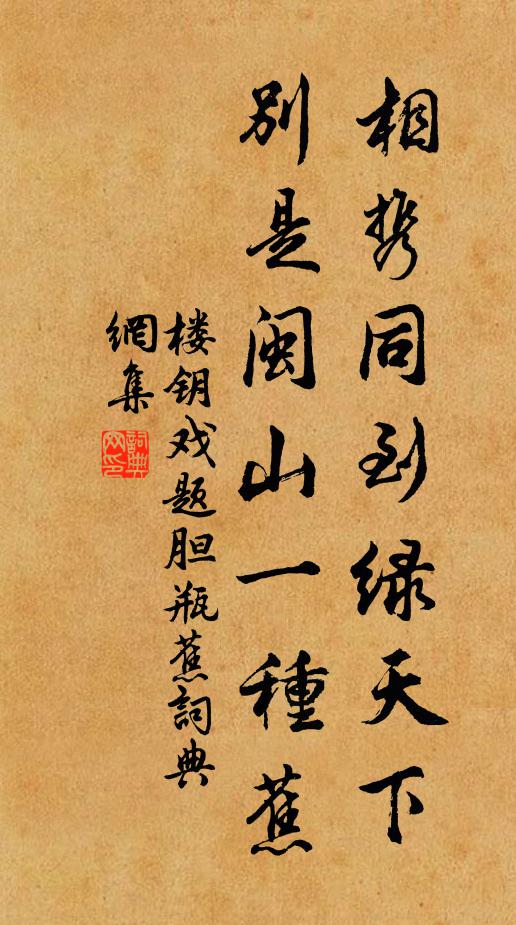 相携同到绿天下
别是闽山一種蕉
楼钥戏题胆瓶蕉詞典
網集
詞典网印